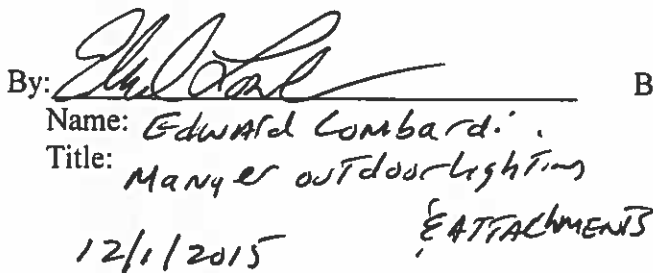 By: B
Name: Edward Lombardi.
Title: Manger outdoor lighting
& ATTACHMENTS
12/1/2015